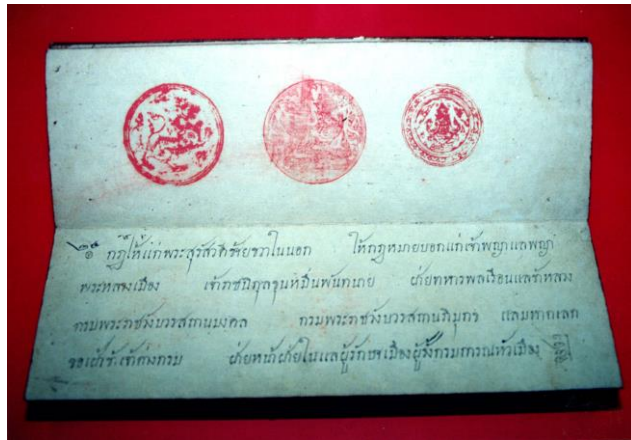 ๏ กฎให้แก่พระสุรัสวดีซ้ายขวาในนอก ให้กฎหมายบอกแก่เจ้าพญาแลพญา
พระหลวงเมือง เจ้าราชนิกุลขุนหมื่นพันทนาย ฝ่ายทหารพลเรือนแลข้าหลวง
กรมพระราชวังบวรสถานมงคล กรมพระราชวังบวรสถานภิมุกข แลมหาดเลก
ขอเฝ้าข้าเจ้าต่างกรม ฝ่ายหน้าฝ่ายในแลผู้รักษาเมืองผู้รั้งกรมการณหัวเมือง